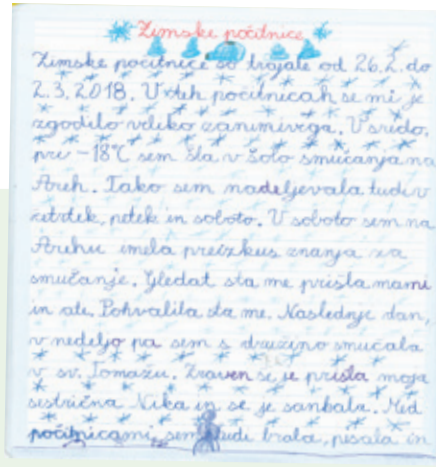 Zimske počitnice
Zimske počitnice so trajale od 26.2. do
2.3.2018. V teh počitnicah se mi je
zgodilo veliko zanimivega. V sredo,
pri -18°C sem šla v šolo smučanja na
Areh. Tako sem nadeljevala tudi v
četrtek, petek in soboto. V soboto sem na
Arehu imela preizkus znanja za
smučanje. Gledat sta me prišla mami
in ati. Pohvalila sta me. Naslednji dan,
v nedeljo pa sem s družino smučala
v sv. Tomažu. Zraven se je prišla moja
sestrična Nika in se je sankala. Med
počitnicami sem tudi brala, pisala in